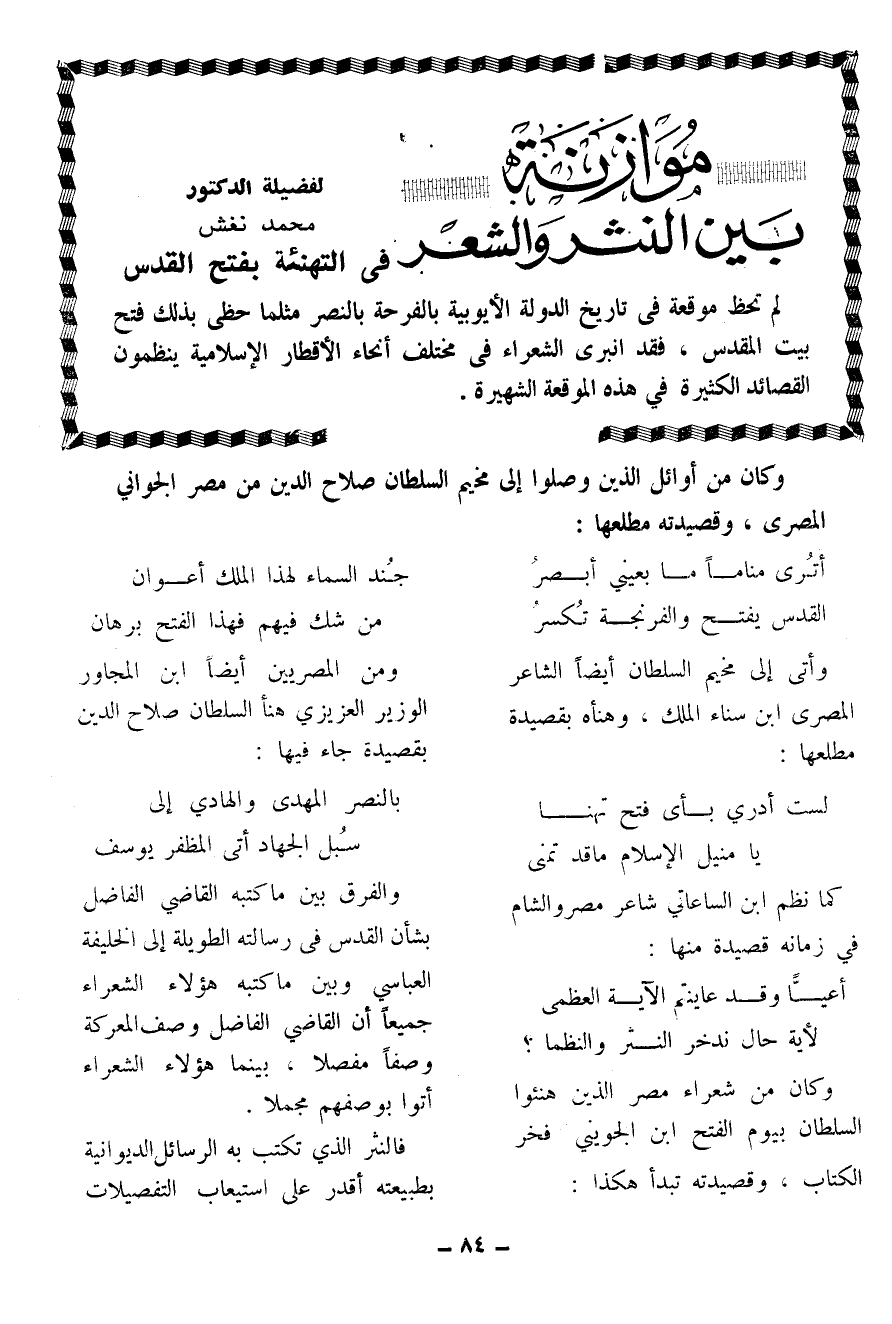 مُوَازَنَة
بَين النثر وَالشعر في التهنئة بفتح القدس
لفضيلة الدكتور
محمد نغش
لم تحظ موقعة فى تاريخ الدولة الأيوبية بالفرحة بالنصر مثلما حظى بذلك فتح
بيت المقدس ، فقد انبرى الشعراء فى مختلف أنحاء الأقطار الإسلامية ينظمون
القصائد الكثيرة في هذه الموقعة الشهيرة .
وكان من أوائل الذين وصلوا إلى مخيم السلطان صلاح الدين من مصر الجواني
المصرى ، وقصيدته مطلعها :
أتُرى مناماً ما بعيني أبصرُ
القدس يفتح والفرنجة تُكسرُ
وأتى إلى مخيم السلطان أيضاً الشاعر
المصرى ابن سناء الملك ، وهنأه بقصيدة
مطلعها :
لست أدري بأى فتح تهنا
يا منيل الإسلام ماقد تمنى
كما نظم ابن الساعاتي شاعر مصر والشام
في زمانه قصيدة منها :
أعيًّا وقد عاينتم الآية العظمى
لأية حال ندخر النثر والنظما ؟
وكان من شعراء مصر الذين هنئوا
السلطان بيوم الفتح ابن الجويني فخر
الكتاب ، وقصيدته تبدأ هكذا :
جُند السماء لهذا الملك أعوان
من شك فيهم فهذا الفتح برهان
ومن المصريين أيضاً ابن المجاور
الوزير العزيزي هنأ السلطان صلاح الدين
بقصيدة جاء فيها :
بالنصر المهدى والهادي إلى
سُبل الجهاد أتى المظفر يوسف
والفرق بين ماكتبه القاضي الفاضل
بشأن القدس فى رسالته الطويلة إلى الخليفة
العباسي وبين ماكتبه هؤلاء الشعراء
جميعاً أن القاضي الفاضل وصف المعركة
وصفاً مفصلا ، بينما هؤلاء الشعراء
أتوا بوصفهم مجملا .
فالنثر الذي تكتب به الرسائل الديوانية
بطبيعته أقدر على استيعاب التفصيلات
– ٨٤ –